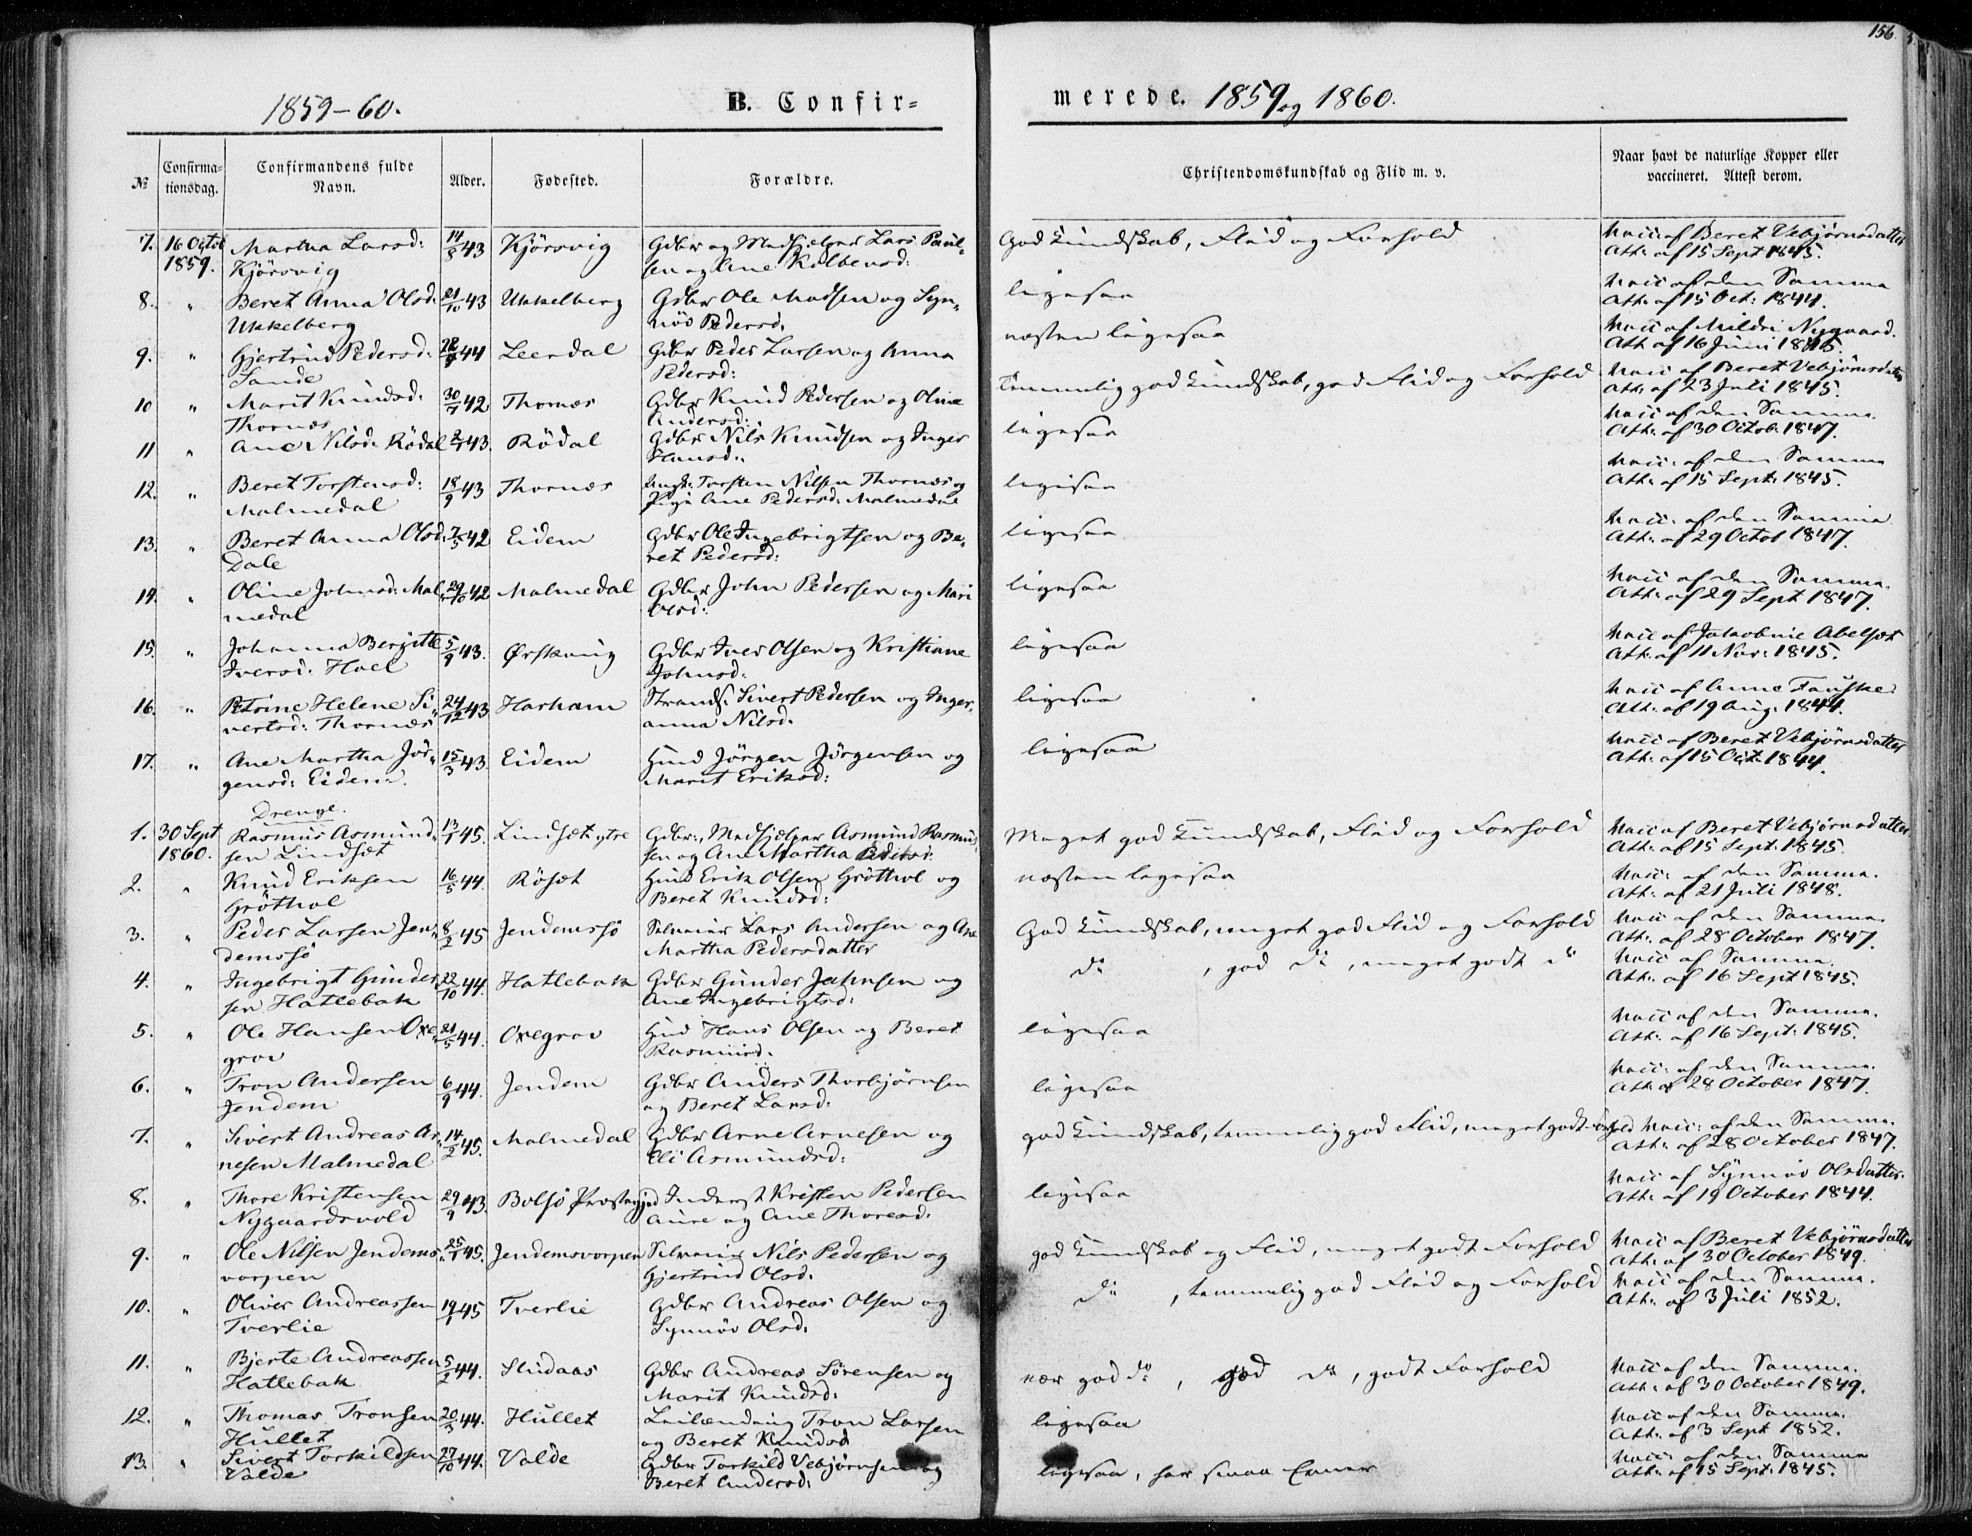 156.
1859-60.
B. Confir=
merede. 1859 og 1860.
№
Confirma-
tionsdag.
Confirmandens fulde
Navn.
Alder.
Fødested.
Forældre.
Christendomskundskab og Flid m. v.
Naar havt de naturlige Kopper eller
vaccineret. Attest derom.
7. 16 Octob Martha Larsd: 14/8 43 Kjörsvig Gdbr og Medhjelper Lars Paul- God Kundskab, Flid og Forhold Vacc: af Beret Vebjørnsdatter
1859. Kjörsvig sen og Ane Kolbensd: Att: af 15 Sept 1845.
8. " Beret Anna Olsd: 21/10 43 Ukkelberg Gdbr Ole Madsen og Syn- ligesaa Vacc af den Samme
Ukkelberg növ Pedersd. Att: af 15 Oct: 1844.
9. " Gjertrud Pedersd: 44 Leerdal Gdbr Peder Larsen og Anna næsten ligesaa Vacc af Mildri Nygaard.
Sande Pedersd: Att af 16 Juni 1845.
10 " Marit Knudsd: 30/7 42 Thornæs Gdbr Knud Pedersen og Oline Temmelig god Kundskab, god Flid og Forhold Vacc af Beret Vebjörnsdatter
Thornæs Andersd: Att: af 23 Juli 1845.
11 " Ane Nilsd: Rödal 43. Rödal Gdbr Nils Knudsen og Inger ligesaa Vacc af den Samme.
Hansd: Att: af 30 Octob: 1847.
12. " Beret Torstensd: 18/9 43 Thornæs Ungk: Torsten Nilsen Thornæs og ligesaa Vacc: af den Samme
Malmedal Pige Ane Pedersd: Malmedal Att: af 15 Sept: 1845.
13. " Beret Anna Olsd: 7/5 42 Eidem Gdbr Ole Ingebrigtsen og Be- ligesaa Vacc: af den Samme
Dale ret Pedersd: Att: af 29 Octob 1847.
14. " Oline Johnsd: Mal- 29/10 42 Malmedal Gdbr John Pedersen og Mari ligesaa Vacc af den Samme.
medal Olsd: Att: af 29 Sept 1847.
15. " Johanna Bergitte 5/9 43. Ørskoug Gdbr Iver Olsen og Kristiane ligesaa Vacc af Jakobine Abelset
Iversd: Hoel Johnsd: Att: af 11 Nov: 1845.
16. " Petrine Helene Si- 24/12 43 Harham Strands: Sivert Pedersen og Inger- ligesaa Vacc af Anne Fauske
vertsd: Thornæs anna Nilsd. Att: af 19 Aug: 1844.
17. " Ane Martha Jör- 15/3 43. Eidem Huusmd Jörgen Jörgensen og ligesaa Vacc af Beret Vebjörnsdatter
gensd: Eidem. Marit Eriksd: Att: af 15 Oct: 1844.
Drenge.
1. 30 Sept Rasmus Asmund- 13/1 45. Lindset ytre Gdbr:, Medhjelper Asmund Rasmus- Meget god Kundskab, Flid og Forhold Vacc af Beret Vebjørnsdatter
1860. sen Lindset sen og Ane Martha Att: af 15 Sept: 1845.
2. " Knud Eriksen 16/5 44. Röset Erik Olsen Gröthol og næsten ligesaa Vacc: af den Samme.
Gröthol Beret Knudsd: Att: af 21 Juli 1848.
3. " Peder Larsen Jen- 8/2 45 Jendemssö Selveier Lars Andersen og Ane God Kundskab, meget god Flid og Forhold Vacc af den Samme.
demssö Martha Pedersdatter Att: af 28 October 1847.
4. " Ingebrigt Gunder- 22/10 44. Hatlebak Gdbr Gunder Jahnsen og do , god do , meget godt do Vacc af Samme.
sen Hatlebak Ane Ingebrigtsd: Att: af 16 Sept 1845.
5. " Ole Hansen Oxe- 21/5 44. Oxegrov Hans Olsen og Beret ligesaa Vacc af den Samme.
grov Rasmusd. Att: af 16 Sept: 1845.
6. " Tron Andersen 6/9 44. Jendem Gdbr Anders Thorbjørnsen ligesaa Vacc: af den Samme.
Jendem og Beret Larsd: Att: af 28 October 1847.
7. " Sivert Andreas Ar- 14/2 45. Malmedal Gdbr Arne Arnesen og god Kundskab, temmelig god Flid, meget godt Vacc: af den Samme.
nesen Malmedal Eli Asmundsd: Att: af 28 October 1847.
8. " Thore Kristensen 29/9 43. Bolsö Præstegjed Inderst Kristen Pedersen ligesaa Vacc af Synnöv Olsdatter.
Nygaardsvold Aure og Ane Thoresd. Att: af 19 October 1844.
9. " Ole Nilsen Jendems- 25/1 45. Jendemsvorpen Selveier Nils Pedersen og god Kundskab og Flid, meget godt Forhold Vacc af Beret Vebjørnsdatter
vorpen Gjertrud Olsd. Att: af 30 October 1849.
10. " Oliver Andreassen 19/1 45 Tverlie Gdbr Andreas Olsen og do , temmelig god Flid og Forhold Vacc af den Samme.
Tverlie Synnöv Olsd. Att: af 3 Juli 1852.
11. " Bjerte Andreassen 5/2 44. Studaas Gdbr Andreas Sörensen og nær god do , god do , godt Forhold Vacc af den Samme.
Hatlebak Marit Knudsd: Att: af 30 October 1849.
12. " Thomas Tronsen 20/3 44. Hullet Leilænding Tron Larsen ligesaa Vacc af den Samme.
Hullet og Beret Knudsd Att: af 3 Sept 1852.
13. " Sivert Torkildsen 27/10 44. Valde Gdbr Torkild Vebjørnsen og ligesaa, har smaa Evner Vacc: af den Samme
Valde Beret Andersd: Att: af 15 Sept: 1845.